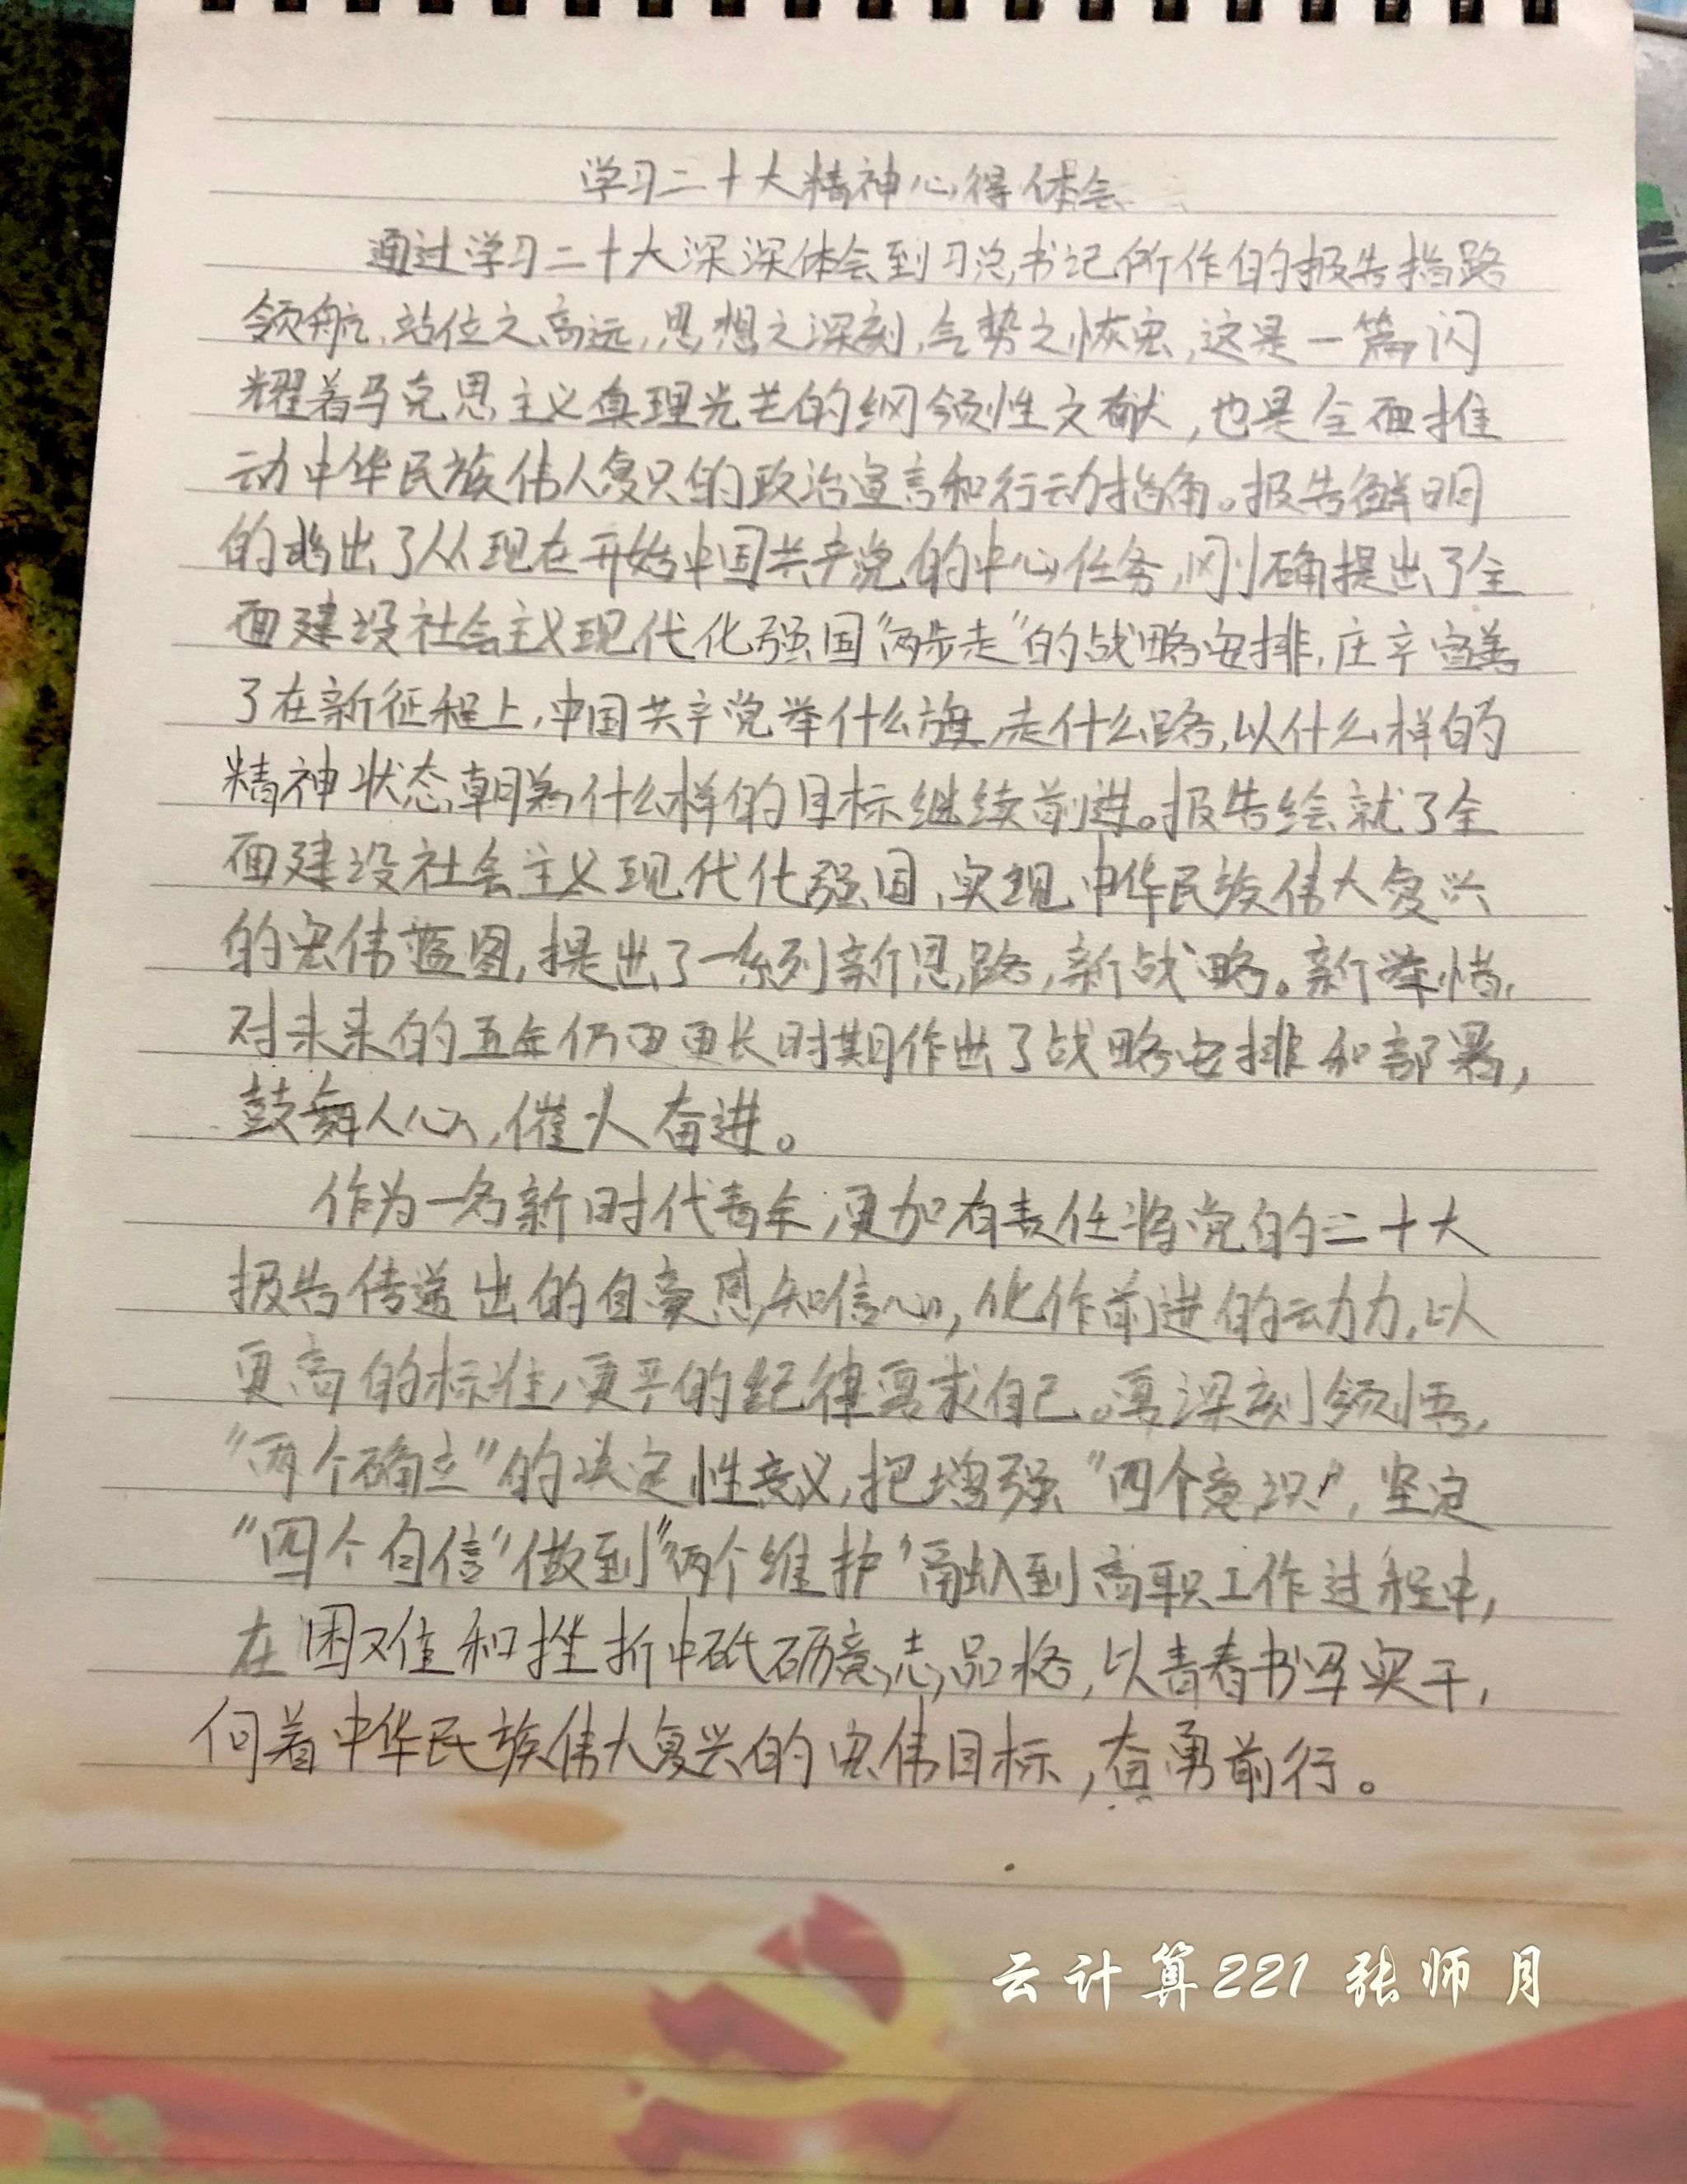 学习二十大精神心得体会
通过学习二十大深深体会到习总书记所作的报告指路
领航,站位之高远,思想之深刻,气势之恢宏,这是一篇闪
耀着马克思主义真理光芒的纲领性文献,也是全面推
动中华民族伟人复兴的政治宣言和行动指南。报告鲜明
的指出了从现在开始中国共产党的中心任务,明确提出了全
面建设社会主义现代化强国“两步走”的战略安排,庄辛宣
了在新征程上,中国共辛党举什么旗,走什么路,以什么样的
精神状态,朝着什么样的目标继续前进。报告绘就了全
面建设社会主义现代化强国、实现中华民族伟大复兴
的宏伟蓝图,提出了一系列新思路,新战略。新举措,
对未来的五年乃至更长时期作出了战略安排和部署,
鼓舞人心,催人奋进。
作为一名新时代青年,更加有责任将党的二十大
报告传递出的自豪感和信心,化作前进的动力,以
更高的标准,更严的纪律要求自己。要深刻领悟,
“两个确立”的决定性意义,把增强“四个意识”,坚定
“四个自信”做到“两个维护”融入到高职工作过程中,
在困难和挫折中砥砺意志品格,以青春书写实干,
向着中华民族伟大复兴的宏伟目标,奋勇前行。
云计算221 张师月